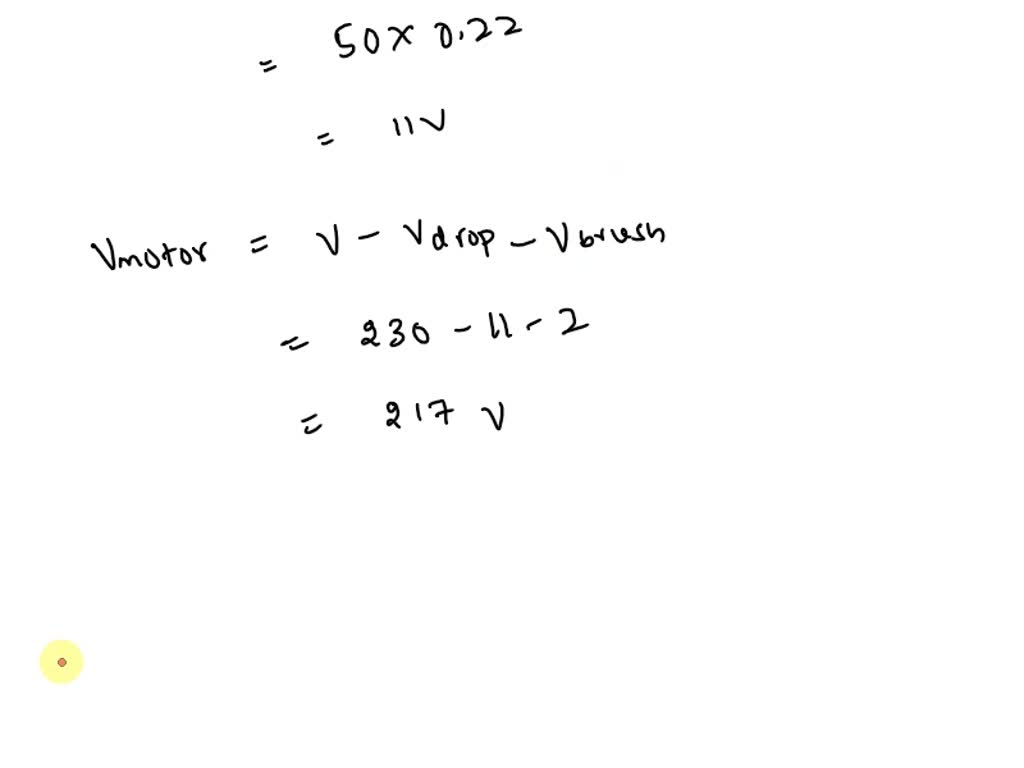 = 50 x 0.22
= 11V
Vmotor = V - Vdrop - Vbrush
= 230 - 11 - 2
= 217 V